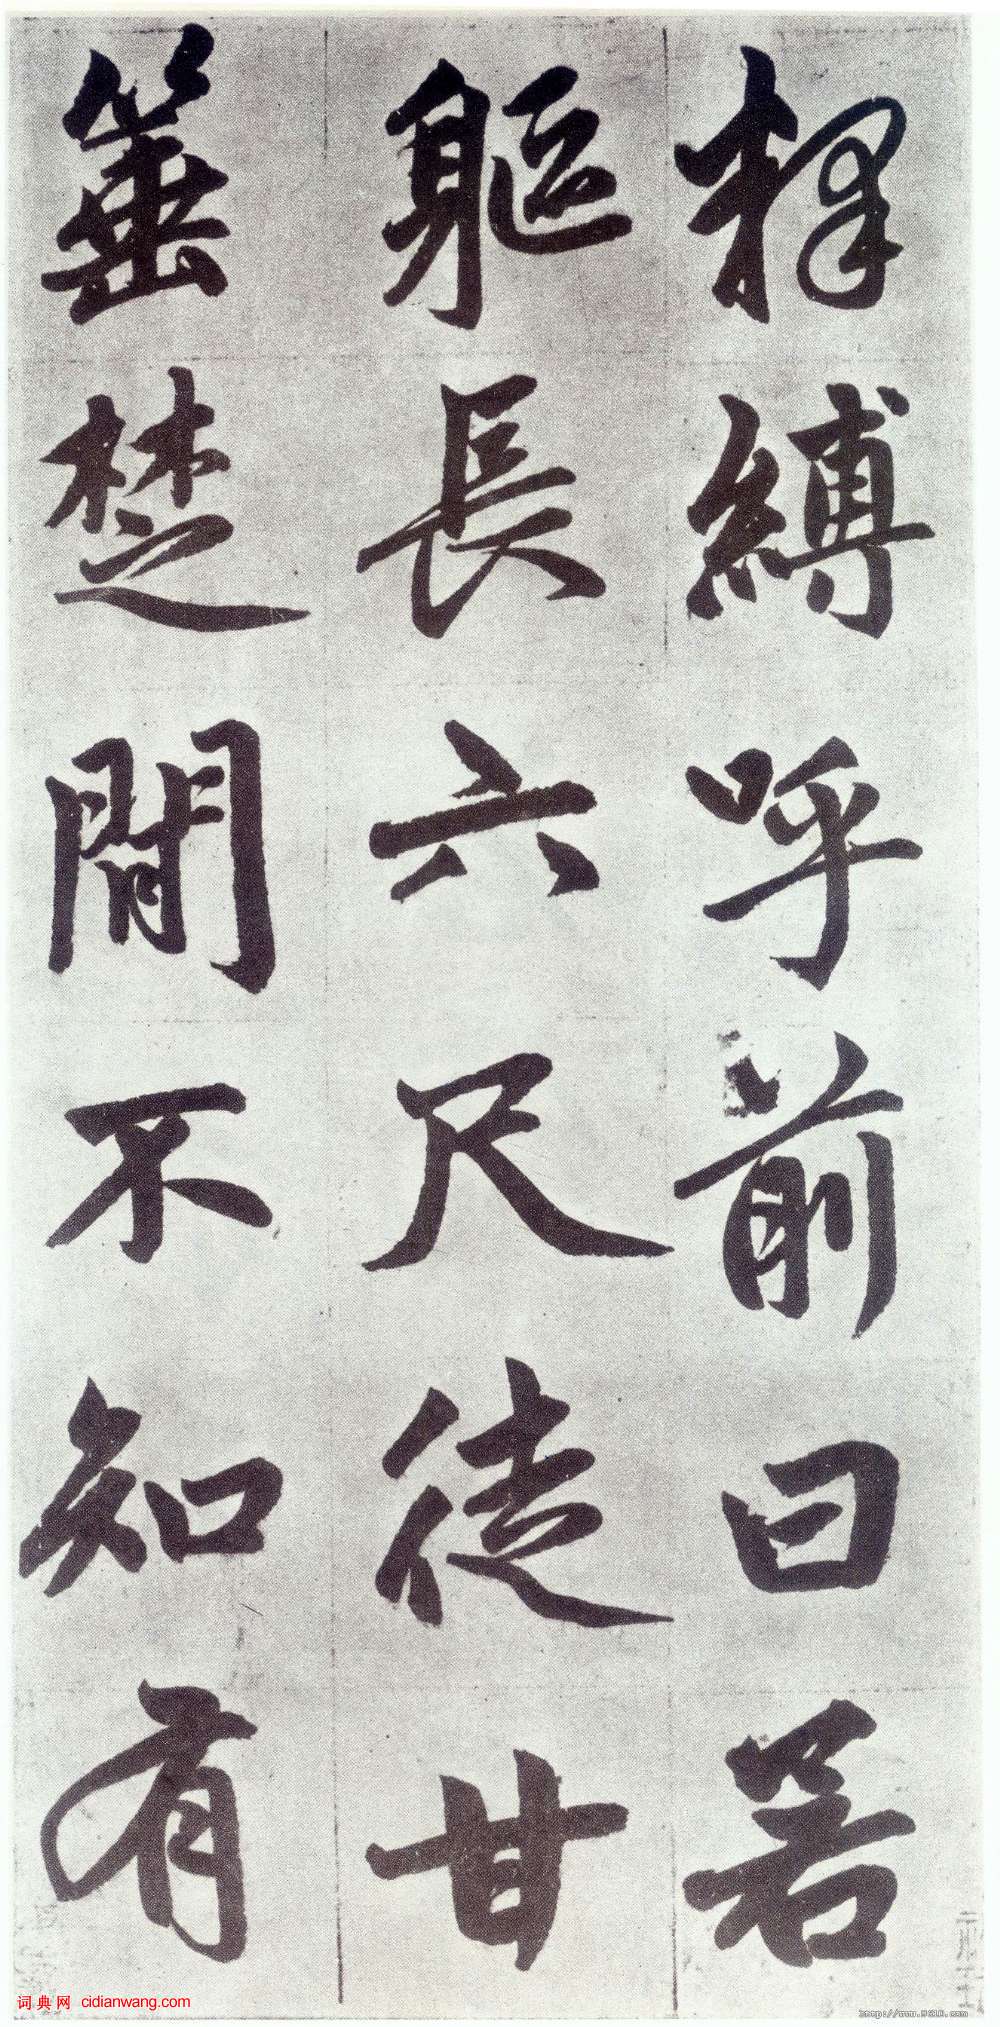 釋縛呼前曰若
軀長六尺徒甘
箠楚閒不知有
词典网 cidianwang.com